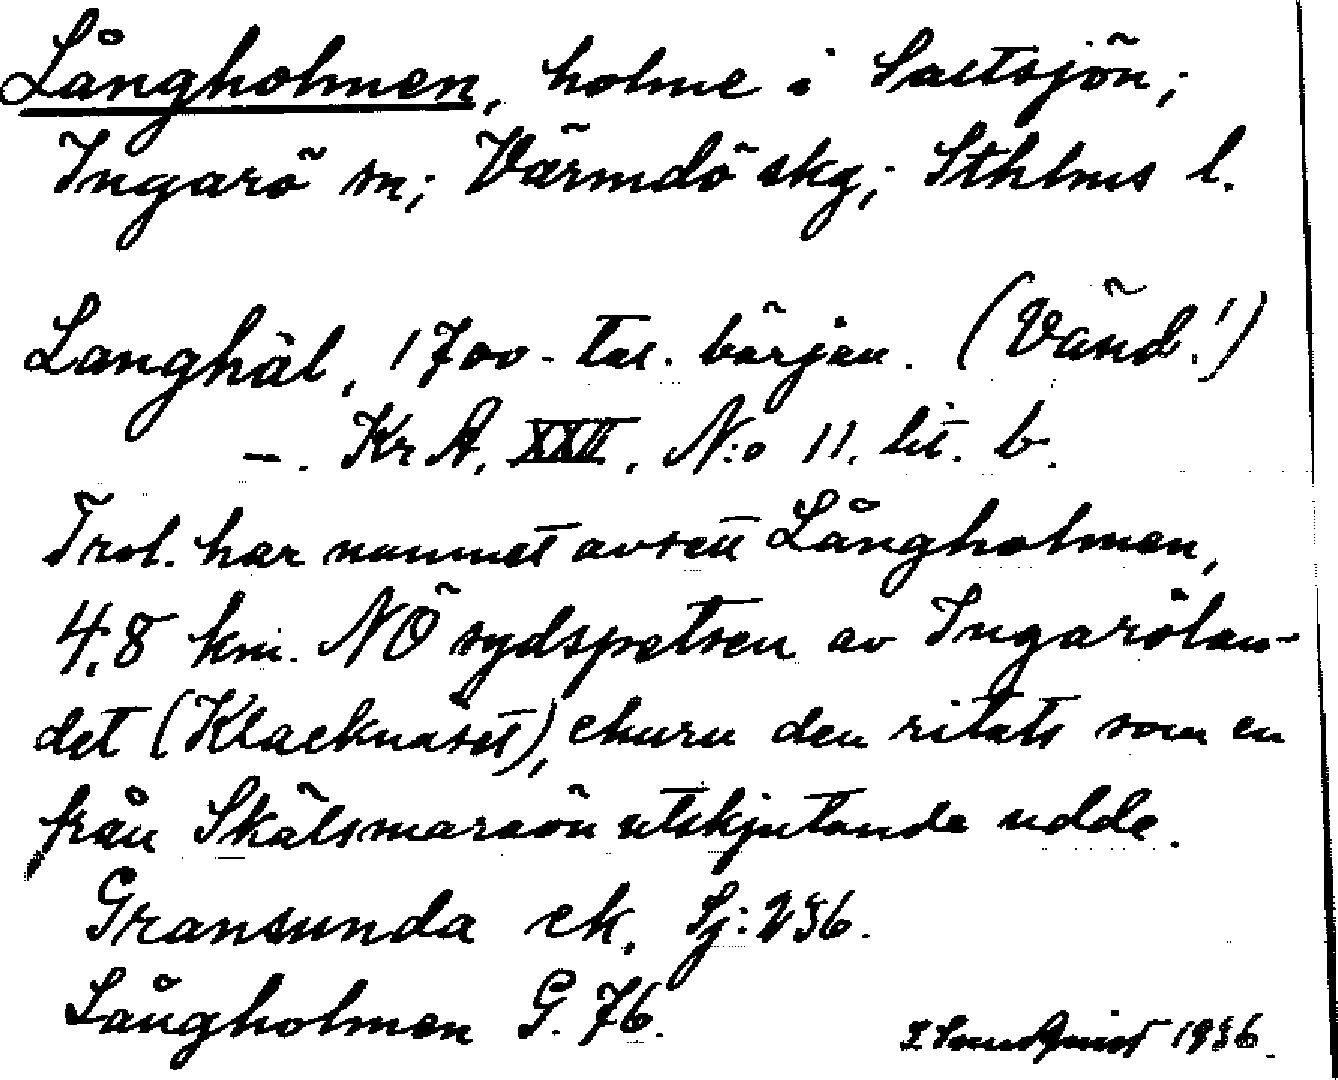 Långholmen, holme i Saltsjön;
Ingarö sn; Värmdö skg; Sthlms l.
Langhäl, 1700-tal. början. (Vänd!)
—. KrA. XXII. N:o 11. lit. b.
Trol. har namnet avsett Långholmen,
4,8 km. NÖ sydspetsen av Ingarölan-
det (Klacknäset), churu den ritats som en
från Skälsmaraön utskjutande udde.
Gransunda ek. Sj: 236.
Långholmen G. 76.
1936.